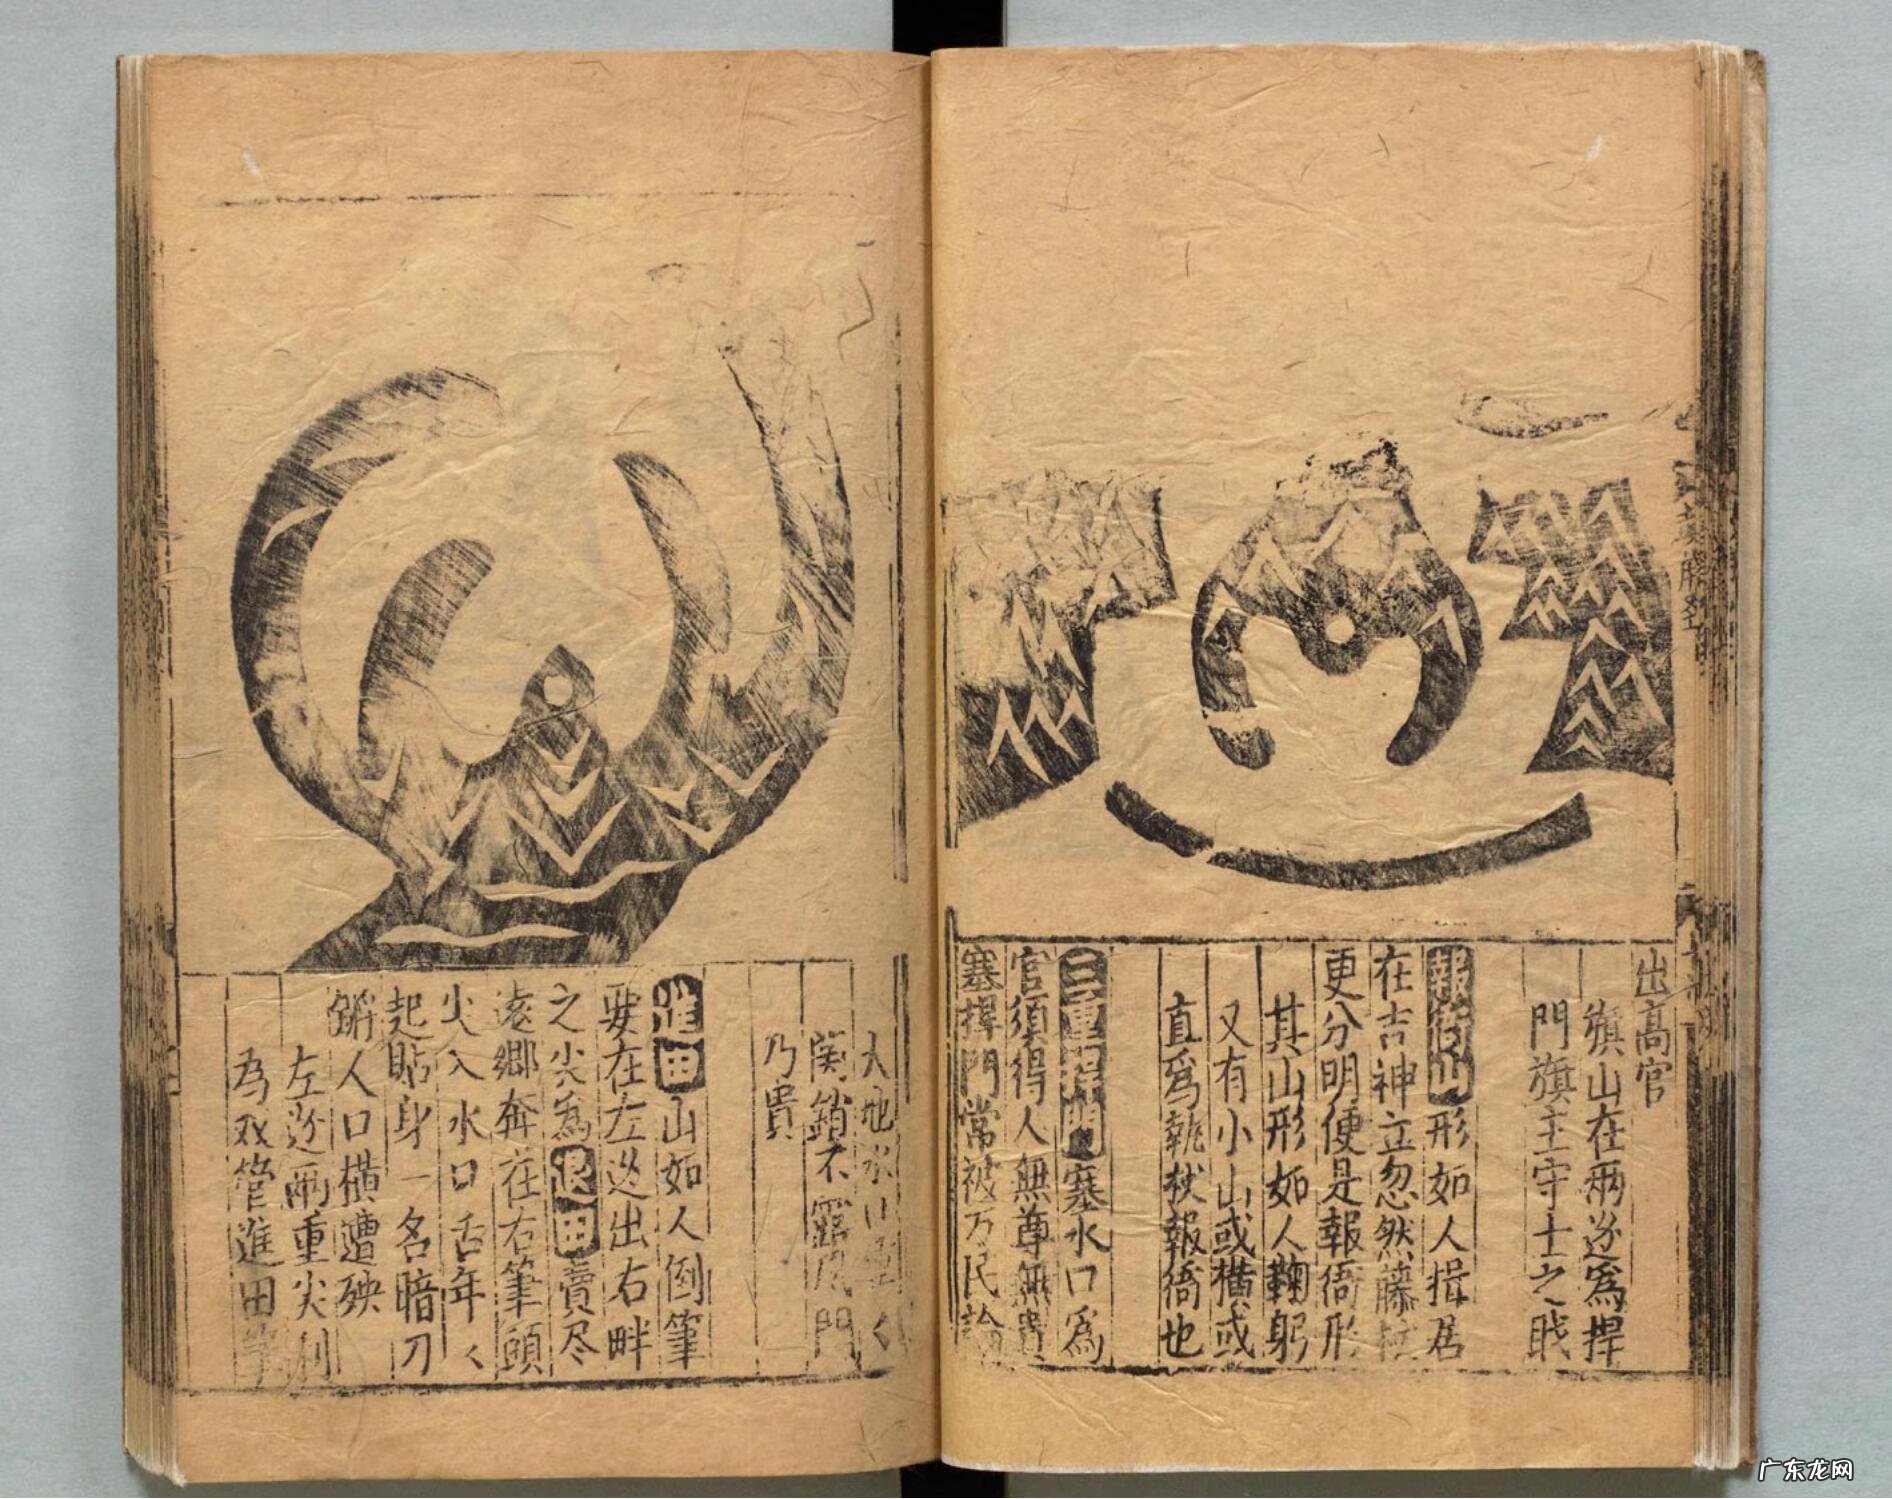 出高官
旗山在兩邊為捍
門旗主守士之戝
報衙山形如人揖居
在吉神立忽然藤
更分明便是報衙形
其山形如人鞠躬
又有小山或橫或
直為執杖報衙也
三重捍門塞水口為
官須得人無尊無
塞捍門常被万民論
大地水口
関鎖不露風門
乃貴
進田山如人倒筆
要在左边出右畔
之尖為退田賣尽
遠鄉奔在右筆頭
尖入水口舌年く
起貼身一名暗刀
人口橫遭殃
左边兩重尖利
為双管進田筆
广东龙网